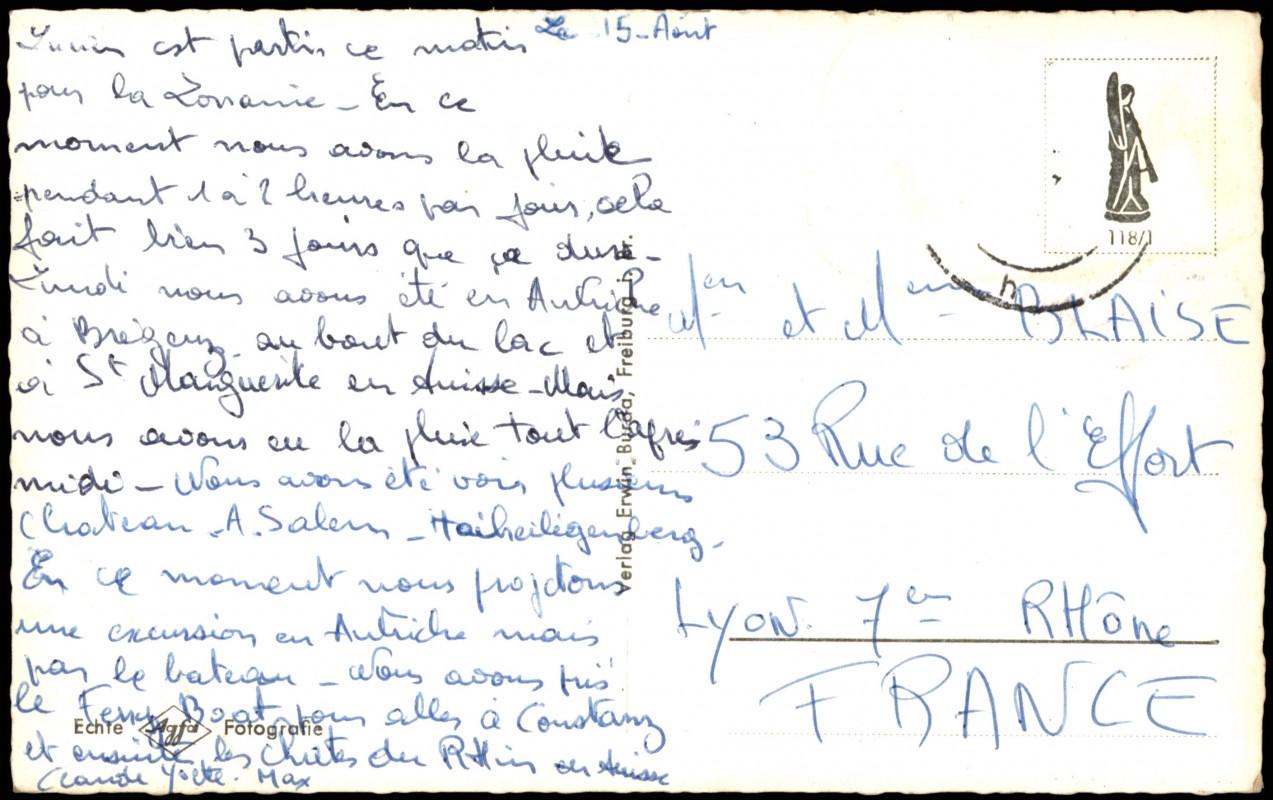 Le 15-Août
Lucien est partis ce matin
pour la Lorraine - En ce
moment nous avons la pluie
pendant 1 à 2 heures par jour, cela
fait bien 3 jours que ça dure -
Lundi nous avons été en Autriche
à Brégenz au bout du lac et
à St Marguerite en Suisse - Mais
nous avons eu la pluie tout l'après
midi - Nous avons été voir plusieurs
Chateau - A. Salem - Heiligenberg -
En ce moment nous projetons
une excursion en Autriche mais
par le bateau - Nous avons pris
le Ferry Boat pour aller à Constanz
et ensuite les chutes du RHin en Suisse
Claude Max
Echte Agfa Fotografie
Verlag Erwin Burda, Freiburg i. Br.
118/1
h
Mr et Mme BLAiSE
53 Rue de l'Effort
Lyon 7em RHône
FRANCE